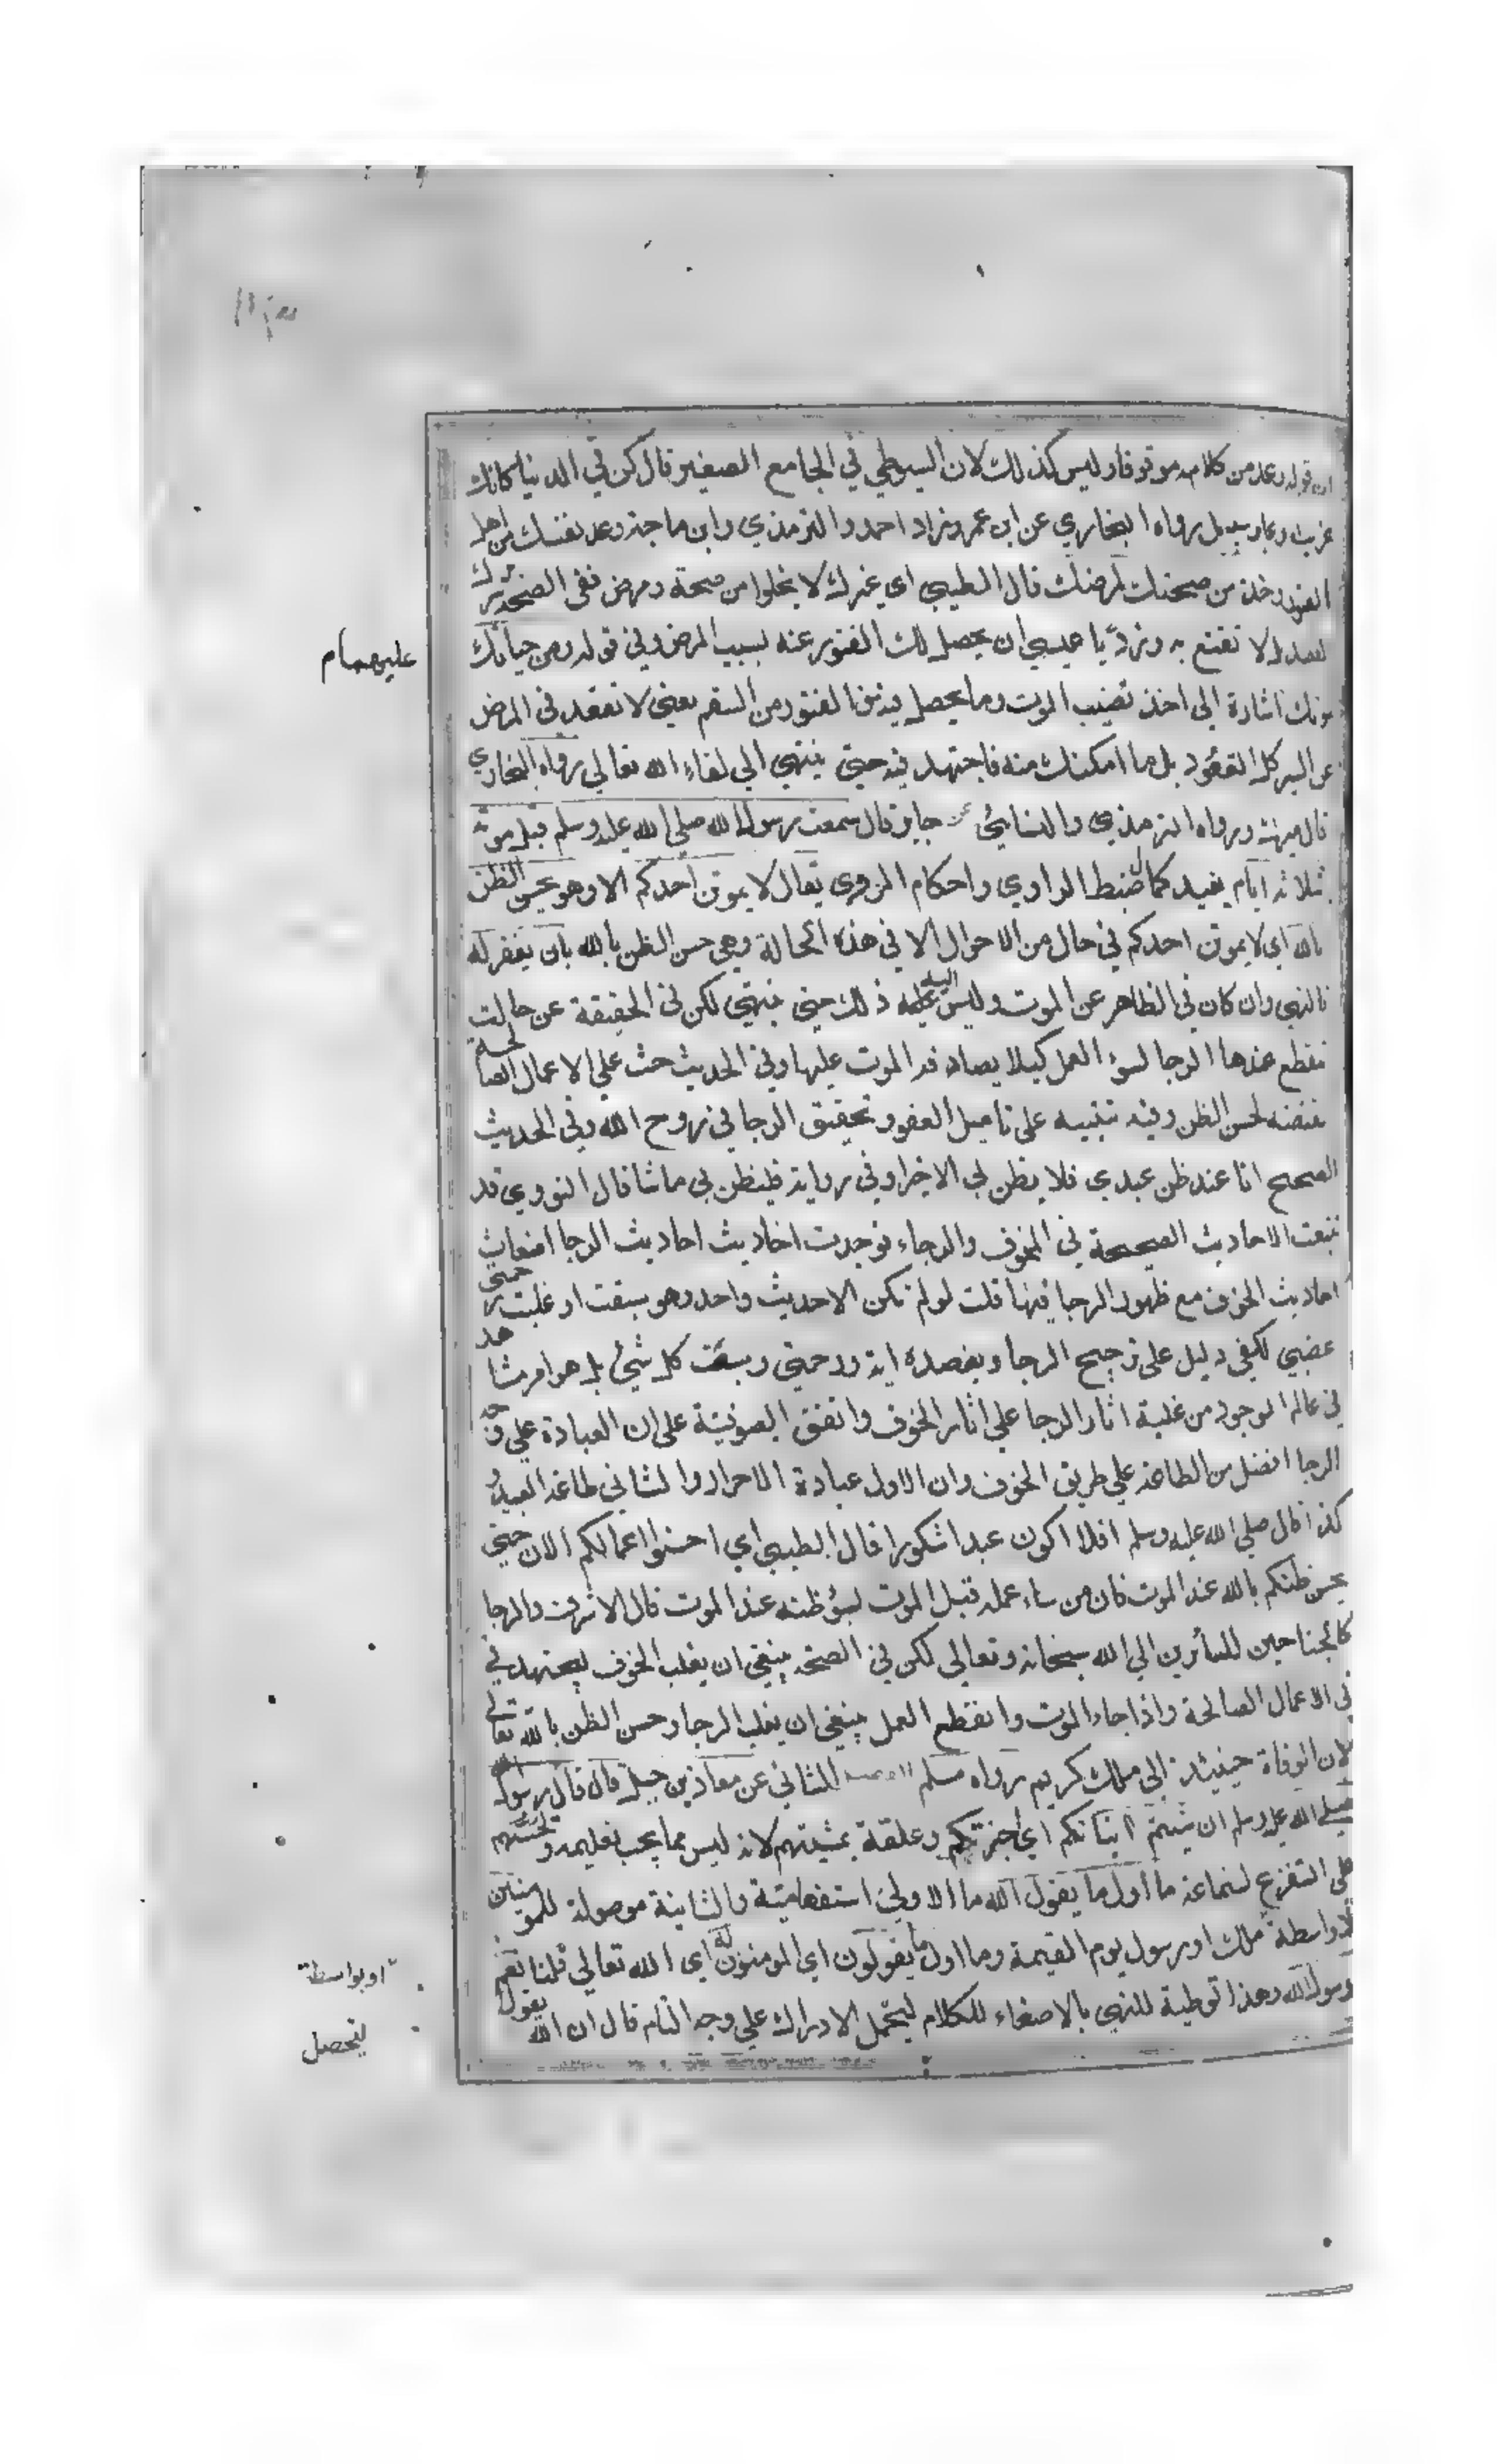 ان قوله وعد من كلامه موقوفا وليس كذلك لان السيوطي في الجامع الصغير قال كن في الدنيا كانك
غريب او عابر سبيل رواه البخاري عن ابن عمر وزاد احمد والترمذي وابن ماجة وعد نفسك من اهل
القبور وخذ من صحتك لمرضك قال الطيبي اي عمرك لا يخلوا من صحة ومرض ففي الصحة
لا تقنع به وزد يا عيسى ان يحصل لك الفتور عنه بسبب المرض وفي قوله ومن حياتك
عليهما م
موتك اشارة الى اخذ نصيب الموت وما يحصل فيه من الفتور من السقم يعني لا تقعد في المرض
عن السير كل القعود بل ما امكنك منه فاجتهد فيه حتى ينتهي الى لقاء الله تعالى رواه البخاري
قال ميرك ورواه الترمذي والنسائي عن جابر قال سمعت رسول الله صلى الله عليه وسلم قبل موته
بثلاثة ايام يفيد كمال ضبط الراوي واحكام المروي يقال لا يموتن احدكم الا وهو يحسن الظن
بالله اي لا يموتن احدكم في حال من الاحوال الا في هذه الحالة وهي حسن الظن بالله بان يغفر له
فالنهي وان كان في الظاهر عن الموت وليس اليه ذلك حتى ينتهي لكن في الحقيقة عن حالت
ينقطع عندها الرجا لسوء العمل كيلا يصادفه الموت عليها وفي الحديث حث على الاعمال الصالحة
لحسن الظن وفيه تنبيه على تاميل العفو وتحقيق الرجا في روح الله وفي الحديث
الصحيح انا عند ظن عبدي فلا يظن بي الا خيرا وفي رواية فليظن بي ما شا قال النووي قد
تتبعت الاحاديث الصحيحة في الخوف والرجاء فوجدت احاديث احاديث الرجا اضعاف
احاديث الخوف مع ظهور الرجا فيها قلت لو لم تكن الا حديث واحد وهو سبقت او غلبت رحمتي
غضبي لكفى دليل على ترجيح الرجا ويعضده اية ورحمتي وسعت كل شيء بل هو امر مشاهد
في عالم الوجود من غلبة اثار الرجا على اثار الخوف واتفق الصوفية على ان العبادة على وجه
الرجا افضل من الطاعة على طريق الخوف وان الاول عبادة الاحرار والثاني طاعة العبيد
كذا قال صلى الله عليه وسلم افلا اكون عبدا شكورا قال الطيبي اي احسنوا اعمالكم الان حتى
يحسن ظنكم بالله عند الموت فان من ساء عمله قبل الموت يسوء ظنه عند الموت قال الاشرف والرجا
كالجناحين للسائرين الى الله سبحانه وتعالى لكن في الصحة ينبغي ان يغلب الخوف ليجتهد في
في الاعمال الصالحة واذا جاء الموت وانقطع العمل ينبغي ان يغلب الرجا وحسن الظن بالله تعالى
لان الوفاة حينئذ الى ملك كريم رواه مسلم الثاني عن معاذ بن جبل قال قال رسول الله
صلى الله عليه وسلم ان شيتم انباتكم اي اخبرتكم وعلقة بمشيتهم لانه ليس مما يجب تعليمه
على التفرغ لسماعه ما اول ما يقول الله ما الاولى استفهامية والثانية موصولة للمؤمنين
بلا واسطة ملك او رسول يوم القيمة وما اول ما يقولون اي المومنون له اي الله تعالى قلنا نعم
او بواسطة
رسول الله وهذا توطية للنهي بالاصغاء للكلام ليتحمل الادراك على وجه التام قال ان الله يقول
ليتحصل